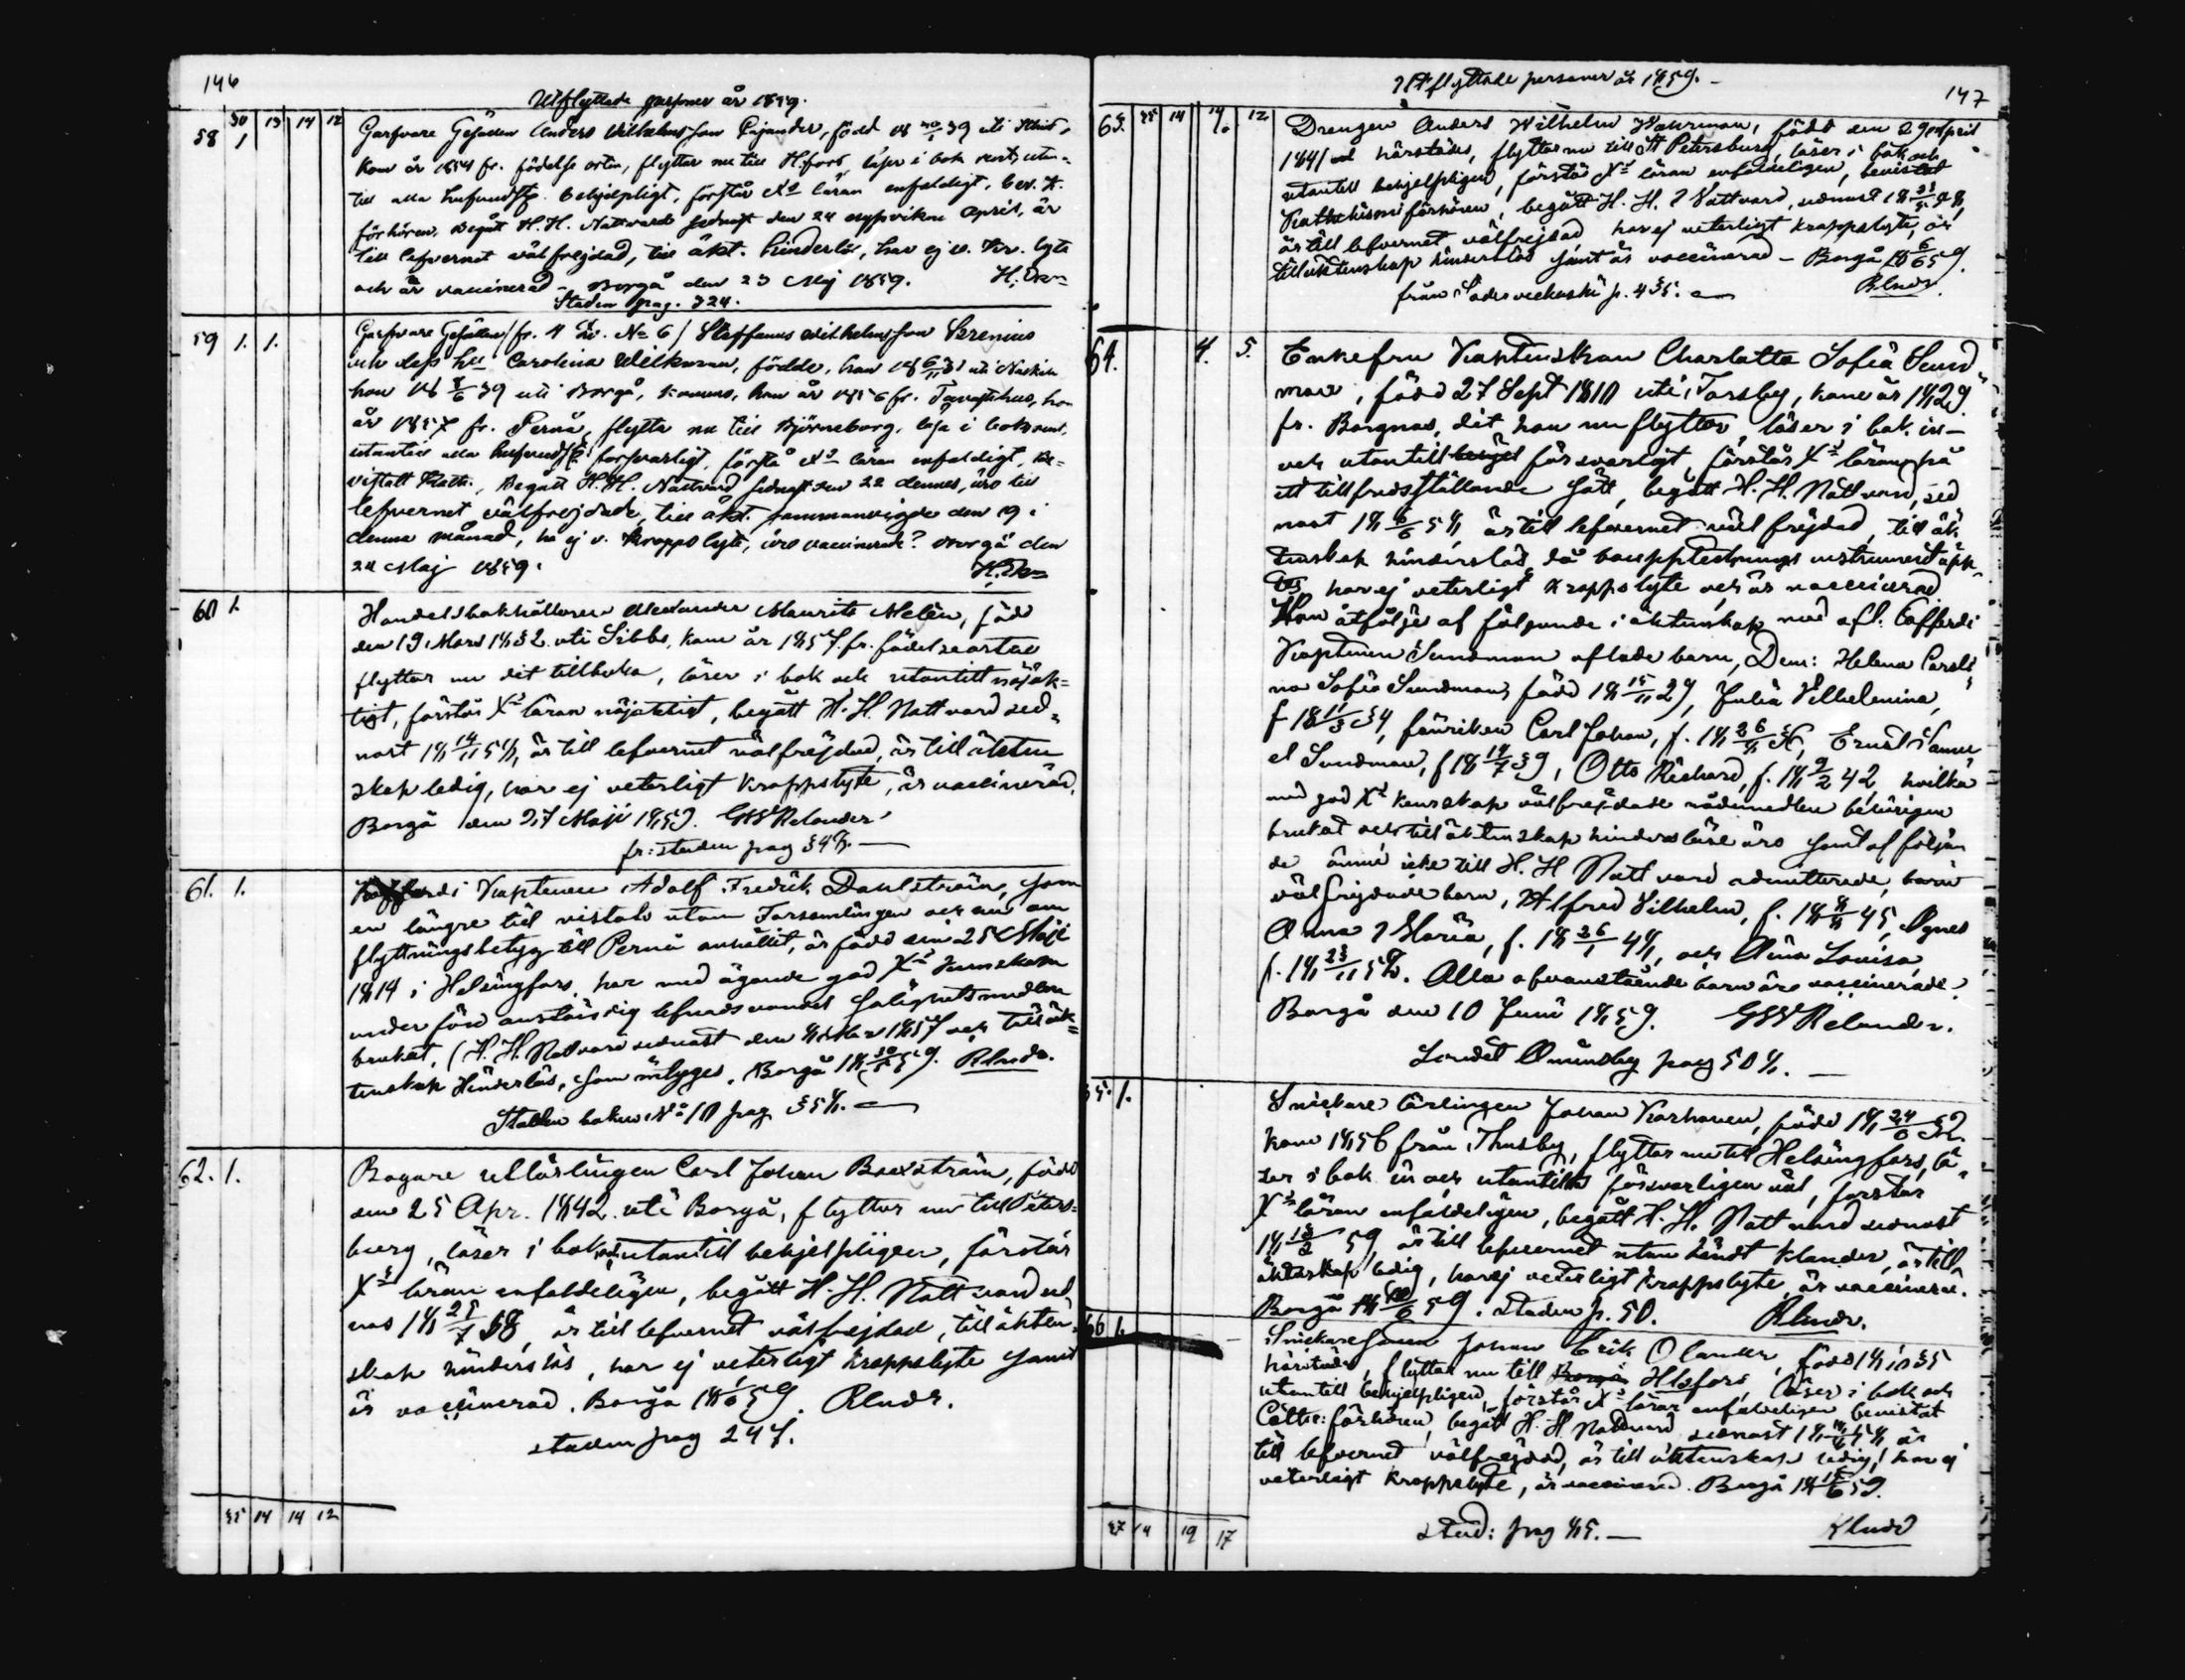 146
Utflyttade personer år 1859.
30 13 14 12
58 1 Garfvare Gesällen Anders Wilhelmsson Cajander, född 18 39 uti
kom år 1854 fr. födelse orten, flyttar nu till H:fors, läser i bok rent, utan-
till alla hufvudst. behjelpligt, förstår Xs läran enfaldigt, bev. K.
förhören. Begått H. H. Nattvard sednast den 24 April, är
till lefvernet välfrejdad, till äkt. hinderlös, har ej v. kr. lyte
och är vaccinerad. Borgå den 23 Maj 1859.
Staden pag. 324.
59 1. 1. Garfvare Gesällen / fr. 4 No 6 / Staffanus Wilhelmsson Serenius
och dess hu Carolina Wilkman, födde, han 18 6/11 31 uti
hon 18 8/6 39 uti Borgå, komne, han år 1856 fr. Tavastehus, hon
år 1857 fr. Pernå, flytta nu till Björneborg, läsa i bok rent,
utantill alla hufvudst. försvarligt, förstå Xs läran enfaldigt, be-
vistatt Kate., Begått H. H. Nattvard sednast den 22 dennes, äro till
lefvernet välfrejdade, till äkt. sammanvigde den 19 i
denna månad, ha ej v. kroppslyte, äro vaccinerade? Borgå den
24 Maj 1859.
60 1. Handelsbokhållaren Alexander Maurits Melén, född
den 19 Mars 1832 uti Sibbo, kom år 1857 fr. födelseorten
flyttar nu dit tillbaka, läser i bok och utantill nöjak-
tigt, förstår Xs läran nöjaktigt, begått H. H. Nattvard sed-
nast 18 14/11 58, är till lefvernet välfrejdad, är till äkten
skap ledig, har ej veterligt kroppslyte, är vaccinerad.
Borgå den 27 Maji 1859. GWRelander
fr: staden pag 348.
61. 1. Kaptenen Adolf Fredrik Dahlström, som
en längre tid vistats utom Församlingen och nu om
flyttningsbetyg till Pernå anhållit, är född den 25 Maji
1814 i Helsingfors, har med ägande god Xs kunskap
under förd anständig lefnadsvandel salighetsmedlen
brukat, (H. H. Nattvard sednast den Mars 1857 och till äk-
tenskap Hinderlös, som intygas. Borgå 18 30/5 59. Rlndr.
Staden boken No 10 pag 358.
62. 1. Bagare Carl Johan Boxström, född
den 25 Apr. 1842 uti Borgå, flyttar nu till Peters-
burg, läser i bok och utantill behjelpligen, förstår
Xs läran enfaldeligen, begått H. H. Nattvard sed
nas 18 25/7 58, är till lefvernet välfrejdad, till äkten-
skap hinderslös, har ej veterligt kroppslyte samt
är vaccinerad. Borgå 18 1/6 59. Rlndr.
staden pag 247.
35 14 14 12
147
Utflyttade personer år 1859.
63. 35 14 14 1. 12 Drengen Anders Wilhelm Wahrman, född den 29 April
1841 härstädes, flyttar nu till St Petersburg, läser i bok och
utantill behjelpligen, förstår Xs läran enfaldeligen, bevistat
Kathekismiförhören, begått H. H. Nattvard, sednast
är till lefvernet välfrejdad, har ej veterligt kroppslyte, är
till äktenskap hinderslös samt är vaccinerad. Borgå 18 6/6 59.
från Söderveckoski p. 435. Rlndr.
64. 4. 5. Enkefru Kaptenskan Charlotta Sofia Sund-
man, född 27 Sept 1810 uti Forsby, kom år 1829
fr. Borgnäs, dit hon nu flyttar, läser i bok in-
och utantill försvarligt, förstår Xs läran på
ett tillfredsställande sätt, begått H. H. Nattvard, sed
nast 18 6/6 58, är till lefvernet väl frejdad, till äk
tenskap hinderslös, då bouppteckningsinstrument upp
tes, har ej veterligt kroppslyte och är vaccinerad
Hon åtföljes af följande i äktenskap med afl.
Kaptenen Sundman aflade barn, Dem: Helena Caroli
na Sofia Sundman, född 18 15/11 29, Julia Vilhelmina,
f 18 11/3 34, fänriken Carl Johan, f. 18 26/8 36, Ernst Samu
el Sundman, f 18 14/7 39, Otto Richard, f. 18 9/2 42, hvilka
med god Xs kunskap välfrejdade nådemedlen behörigen
brukat och till äktenskap hinderslöse äro samt af följan
de ännu icke till H. H Nattvard admitterade, barn
välfrejdade barn, Alfred Vilhelm, f. 18 8/8 45, Agnes
Anna Maria, f. 18 26/1 48, och Aina Lovisa,
f. 18 23/11 50. Alla ofvanstående barn äro vaccinerade.
Borgå den 10 Juni 1859. GWRelander.
Landet Ömmsby pag 508.
65. 1. Snickare Lärlingen Johan Korhonen, född 18 24/6 32
kom 1856 från Thusby, flyttar nu till Helsingfors, lä-
ser i bok in och utantill försvarligen väl, förstår
Xs läran enfaldeligen, begått H. H. Nattvard sednast
18 13/2 59, är till lefvernet utan kändt klander, är till
äktenskap ledig, har ej veterligt kroppslyte, är vaccinerad.
Borgå 18 10/6 59. staden p. 50. Rlndr.
66 1. Snickare Johan Erik Olander, född
härstädes, flyttar nu till Borgå Hlsfors, läser i bok och
utantill behjelpligen, förstår Xs läran enfaldeligen bevistat
Catte: förhören, begått H. H. Nattvard sednast är
till lefvernet välfrejdad, är till äktenskap ledig, har ej
veterligt kroppslyte, är vaccinerad. Borgå 18 15/6 59.
37 14 19 17 stad: pag 85. Rlndr